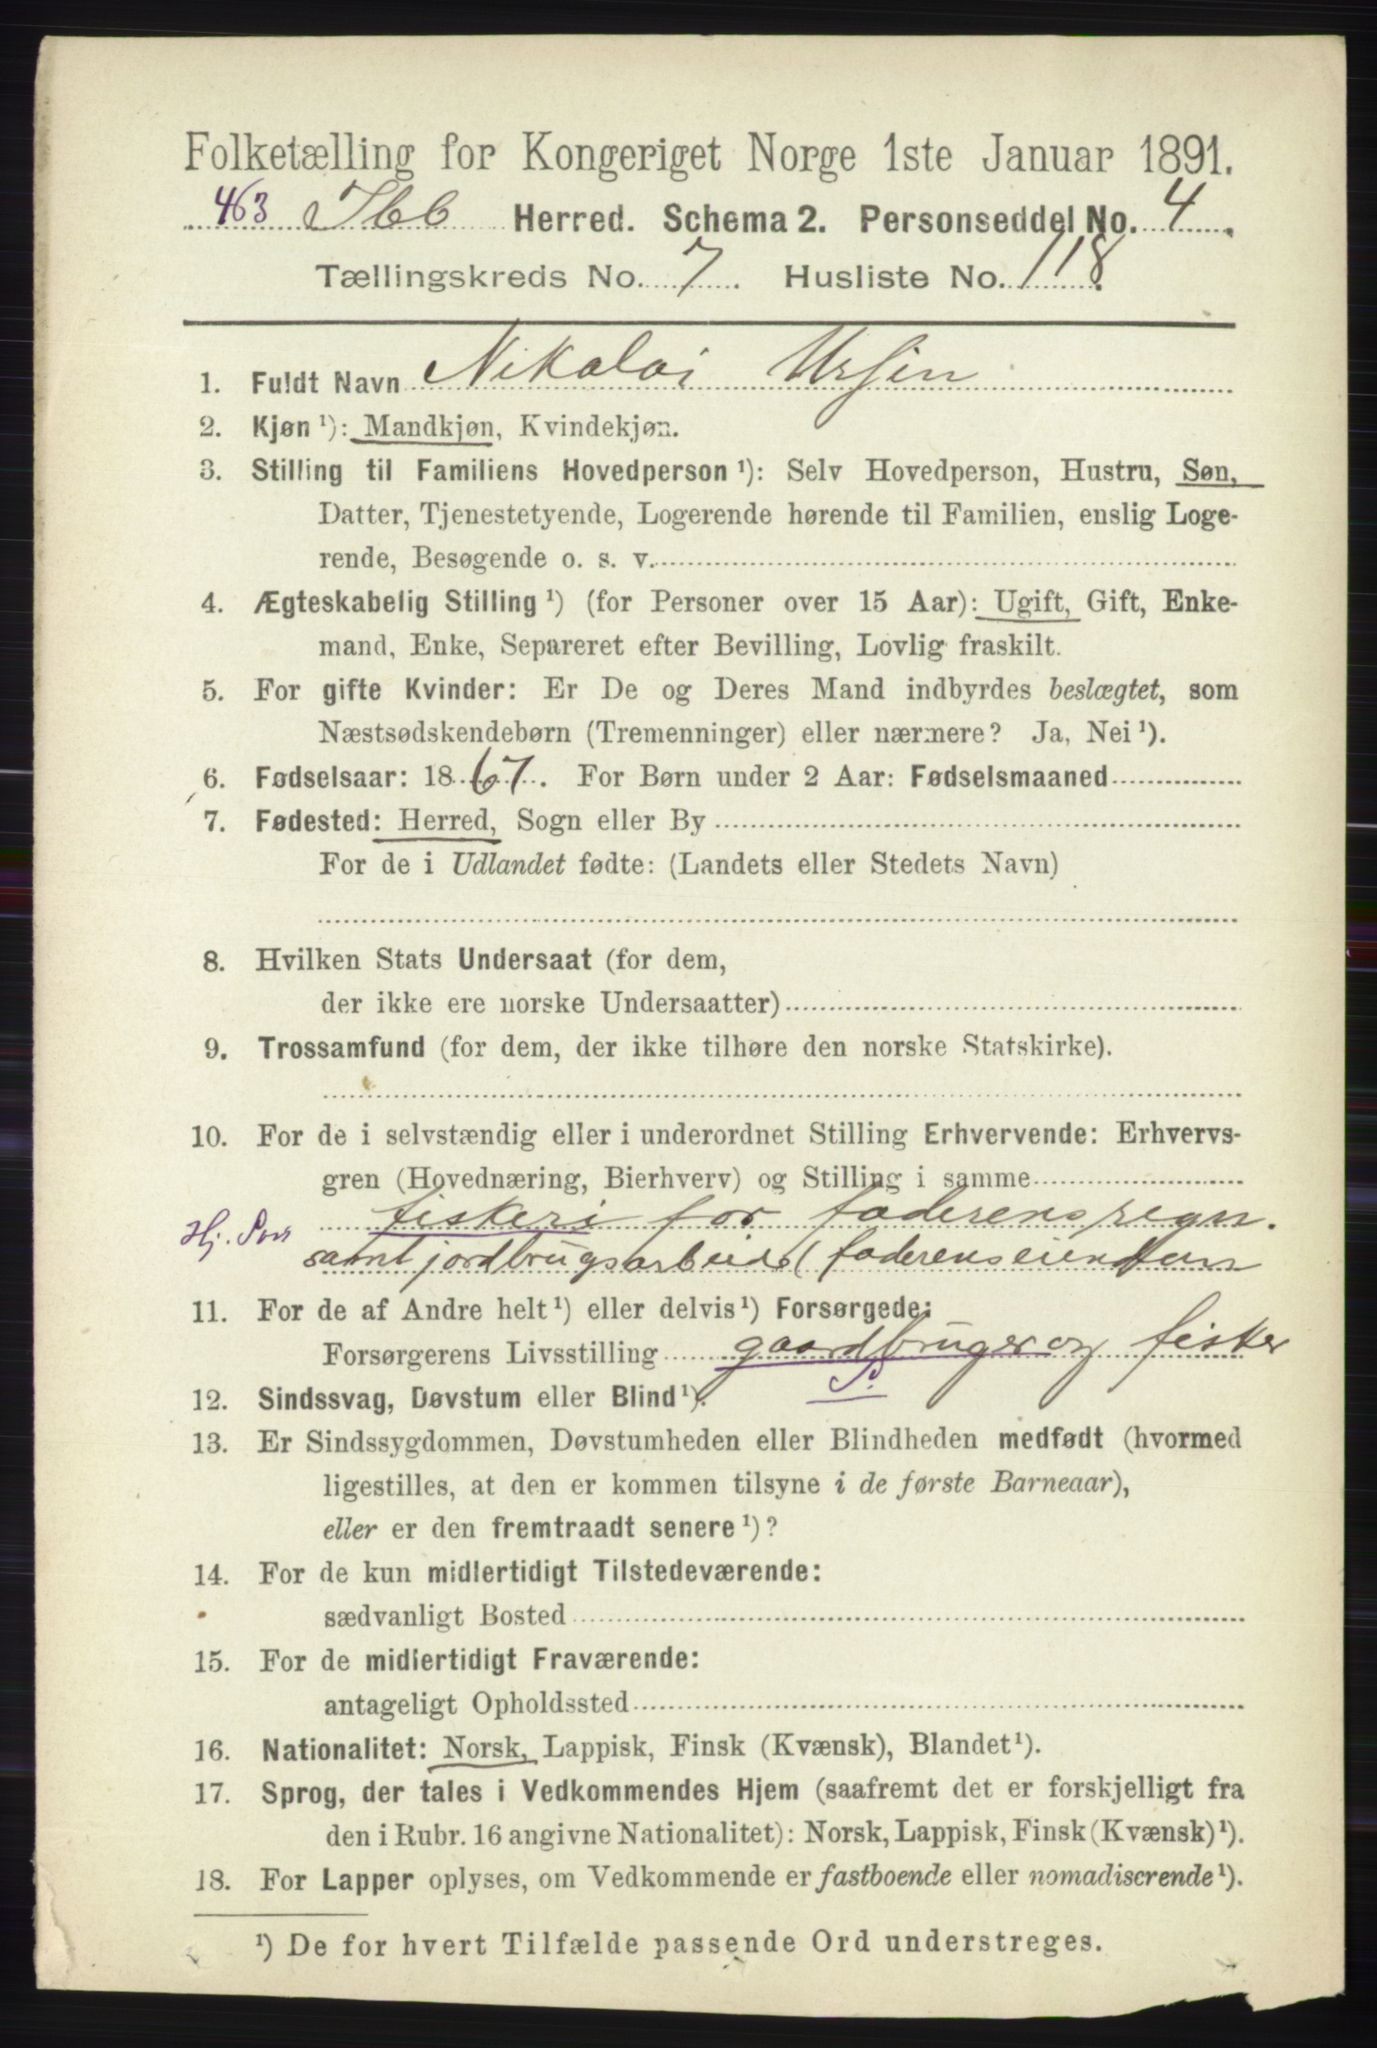 Folketælling for Kongeriget Norge 1ste Januar 1891.
463 Ibb Herred. Schema 2. Personseddel No. 4.
Tællingskreds No. 7. Husliste No. 118.
1. Fuldt Navn Nikolai Ursin
2. Kjøn ¹): Mandkjøn, Kvindekjøn.
3. Stilling til Familiens Hovedperson ¹): Selv Hovedperson, Hustru, Søn,
Datter, Tjenestetyende, Logerende hørende til Familien, enslig Loge-
rende, Besøgende o. s. v.
4. Ægteskabelig Stilling ¹) (for Personer over 15 Aar): Ugift, Gift, Enke-
mand, Enke, Separeret efter Bevilling, Lovlig fraskilt.
5. For gifte Kvinder: Er De og Deres Mand indbyrdes beslægtet, som
Næstsødskendebørn (Tremenninger) eller nærmere? Ja, Nei ¹).
6. Fødselsaar: 1867. For Børn under 2 Aar: Fødselsmaaned
7. Fødested: Herred, Sogn eller By
For de i Udlandet fødte: (Landets eller Stedets Navn)
8. Hvilken Stats Undersaat (for dem,
der ikke ere norske Undersaatter)
9. Trossamfund (for dem, der ikke tilhøre den norske Statskirke).
10. For de i selvstændig eller i underordnet Stilling Erhvervende: Erhvervs-
gren (Hovednæring, Bierhverv) og Stilling i samme
Hj. Søn fiskeri for faderens regn.
samt jordbrugsarbeide (faderens eiendom
11. For de af Andre helt ¹) eller delvis ¹) Forsørgede:
Forsørgerens Livsstilling gaardbruger og fisker
12. Sindssvag, Døvstum eller Blind ¹). S.
13. Er Sindssygdommen, Døvstumheden eller Blindheden medfødt (hvormed
ligestilles, at den er kommen tilsyne i de første Barneaar),
eller er den fremtraadt senere ¹)?
14. For de kun midlertidigt Tilstedeværende:
sædvanligt Bosted
15. For de midlertidigt Fraværende:
antageligt Opholdssted
16. Nationalitet: Norsk, Lappisk, Finsk (Kvænsk), Blandet ¹).
17. Sprog, der tales i Vedkommendes Hjem (saafremt det er forskjelligt fra
den i Rubr. 16 angivne Nationalitet): Norsk, Lappisk, Finsk (Kvænsk) ¹).
18. For Lapper oplyses, om Vedkommende er fastboende eller nomadiserende ¹).
¹) De for hvert Tilfælde passende Ord understreges.